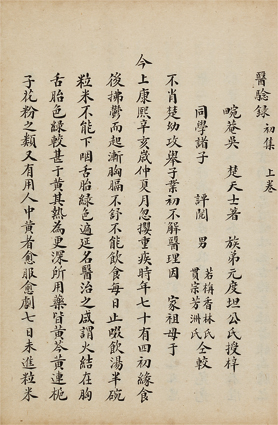 醫驗錄 初集 上卷
畹菴吳 楚天士著 族弟元度坦公氏授梓
同學諸子 評閱 男 若栴香林氏 貫宗芳洲氏 仝較
不肖楚幼攻舉子業初不解醫理因 家祖母于
今上康熙辛亥歲仲夏月忽攖重疾時年七十有四初緣食
後拂鬱而起漸胸膈不舒不能飲食每日止啜飲湯半碗
粒米不能下咽舌胎綠色遍延名醫治之咸謂火結在胸
舌胎色綠較甚于黃其熱為更深所用藥皆黃芩黃連梔
子花粉之類又有用人中黃者愈服愈劇七日未進粒米